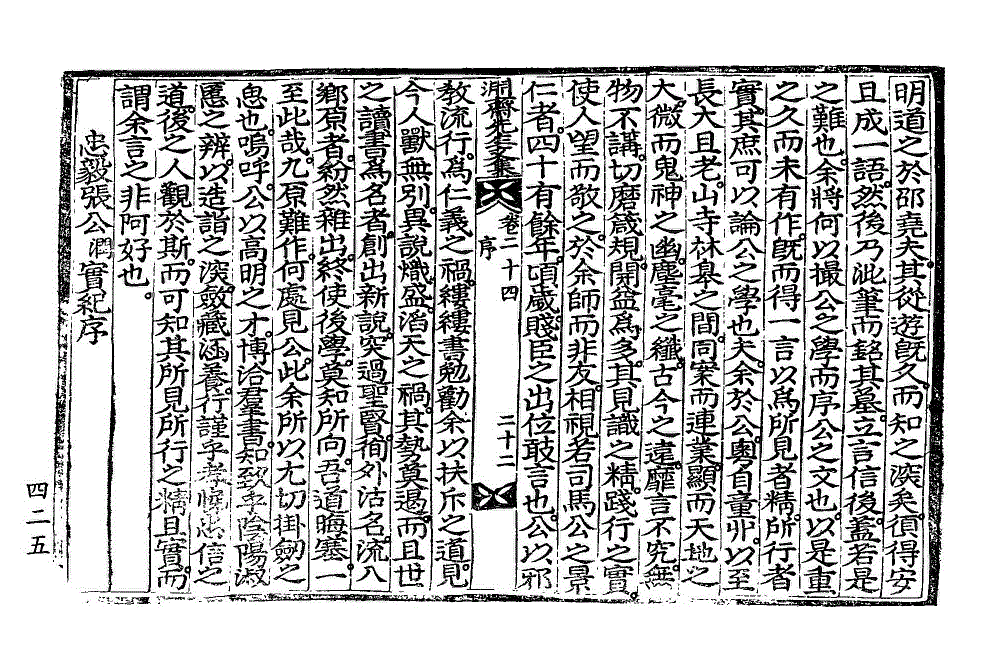 明道之於邵堯夫。其從遊既久。而知之深矣。須得安
且成一語。然後乃泚筆而銘其墓。立言信後。蓋若是
之難也。余將何以撮公之學而序公之文也。以是重
之久而未有作。既而得一言以爲所見者精。所行者
實。其庶可以論公之學也夫。余於公。粤自童丱。以至
長大且老。山寺林皐之間。同案而連業。顯而天地之
大。微而鬼神之幽。塵毫之纖。古今之遠。靡言不究。無
物不講。切磨箴規。開益爲多。其見識之精。踐行之實。
使人望而敬之。於余師而非友。相視若司馬公之景
仁者。四十有餘年。頃歲賤臣之出位敢言也。公以邪
卷二十四
序
二十二
敎流行。爲仁義之禍。縷縷書勉。勸余以扶斥之道。見
今人獸無別。異說熾盛。滔天之禍。其勢莫遏。而且世
之讀書爲名者。創出新說。突過聖賢。徇外沽名。流入
鄕原者。紛然雜出。終使後學。莫知所向。吾道晦塞。一
至此哉。九原難作。何處見公。此余所以尤切掛劒之
悤也。嗚呼。公以高明之才。博洽羣書。知致乎陰陽淑
慝之辨。以造詣之深。斂藏涵養。行謹乎孝悌忠信之
道。後之人觀於斯。而可知其所見所行之精且實。而
謂余言之非阿好也。
忠毅張公潤實紀序
四二五